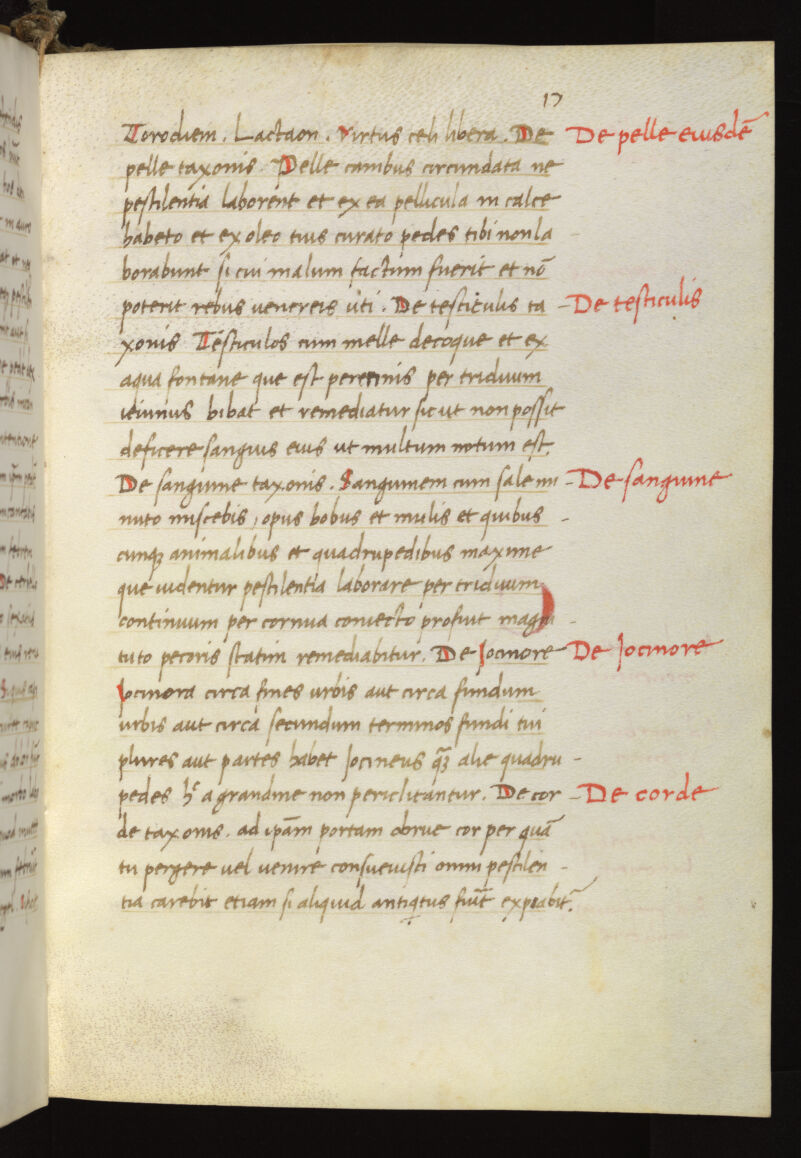 17
Torodiem. Lactaon. Virtus celi libera. De
De pelle eiusdē
pelle taxonis. Pelle canibus circundata ne
pestilentia laborent et ex ea pellicula in calce
habeto et ex oleo tuis curato pedes tibi non la
borabunt si cui malum factum fuerit et nō
poterit rebus venereis uti. De testiculis ta
De testiculis
xonis Testiculos cum melle decoque et ex
aqua fontane que est perennis per triduum
ieiunus bibat et remediatur sicut non possit
deficere sanguis eius ut multum notum est.
De sanguine taxonis. Sanguinem cum sale mi
De sanguine
nuto miscebis, opus bobus et mulis et quibus
cunqꝫ animalibus et quadrupedibus maxime
que uidentur pestilentia laborare per triduum
continuum per cornua coniecto profiut magni
tuto pecoris statim remediabitur. De Jocinore
De Jocinore
Jocinora circa fines urbis aut circa fundum
urbis aut circa secundum terminos fundi tui
plures aut partes habet Jocineus qꝫ alie quadru
pedes h̄ a grandine non periclitantur. De cor
De corde
de taxonis. ad ipām portam obrue cor per quā
tu pergere uel uenire consueuisti omni pestilen
tia carebit etiam si aliquid antiqitus fiūt expiabit᷑